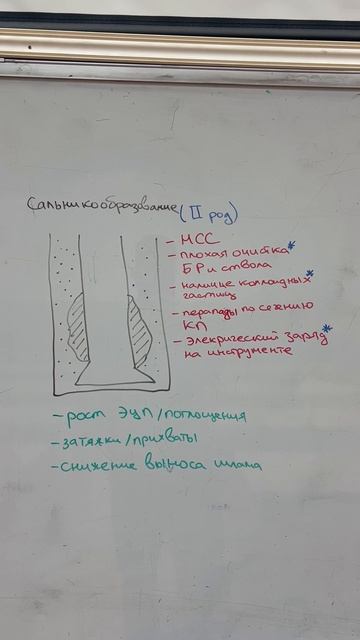 Сальникообразование (II род)
- МСС
- плохая очистка*
БР и ствола
- наличие коллоидных*
частиц
- перепады по сечению
КП
- элекрический заряд*
на инструменте
- рост ЭЦП/поглощения
- затяжки/прихваты
- снижение выноса шлама